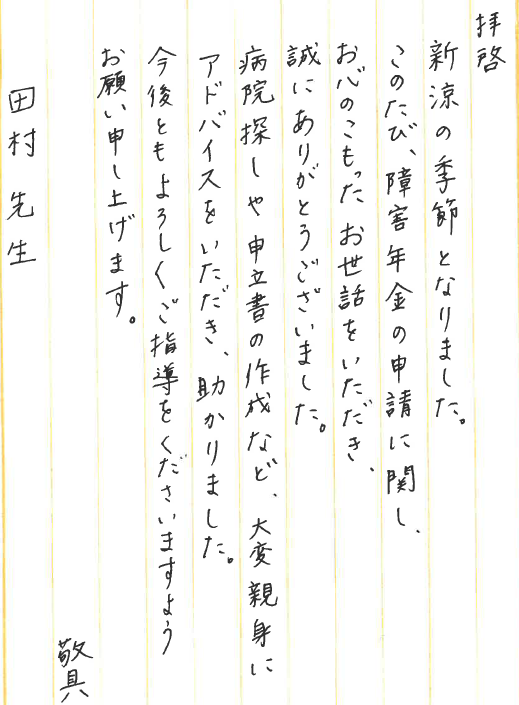 拝啓
新涼の季節となりました。
このたび、障害年金の申請に関し、
お心のこもったお世話をいただき、
誠にありがとうございました。
病院探しや申立書の作成など、大変親身に
アドバイスをいただき、助かりました。
今後ともよろしくご指導をくださいますよう
お願い申し上げます。
敬具
田村先生